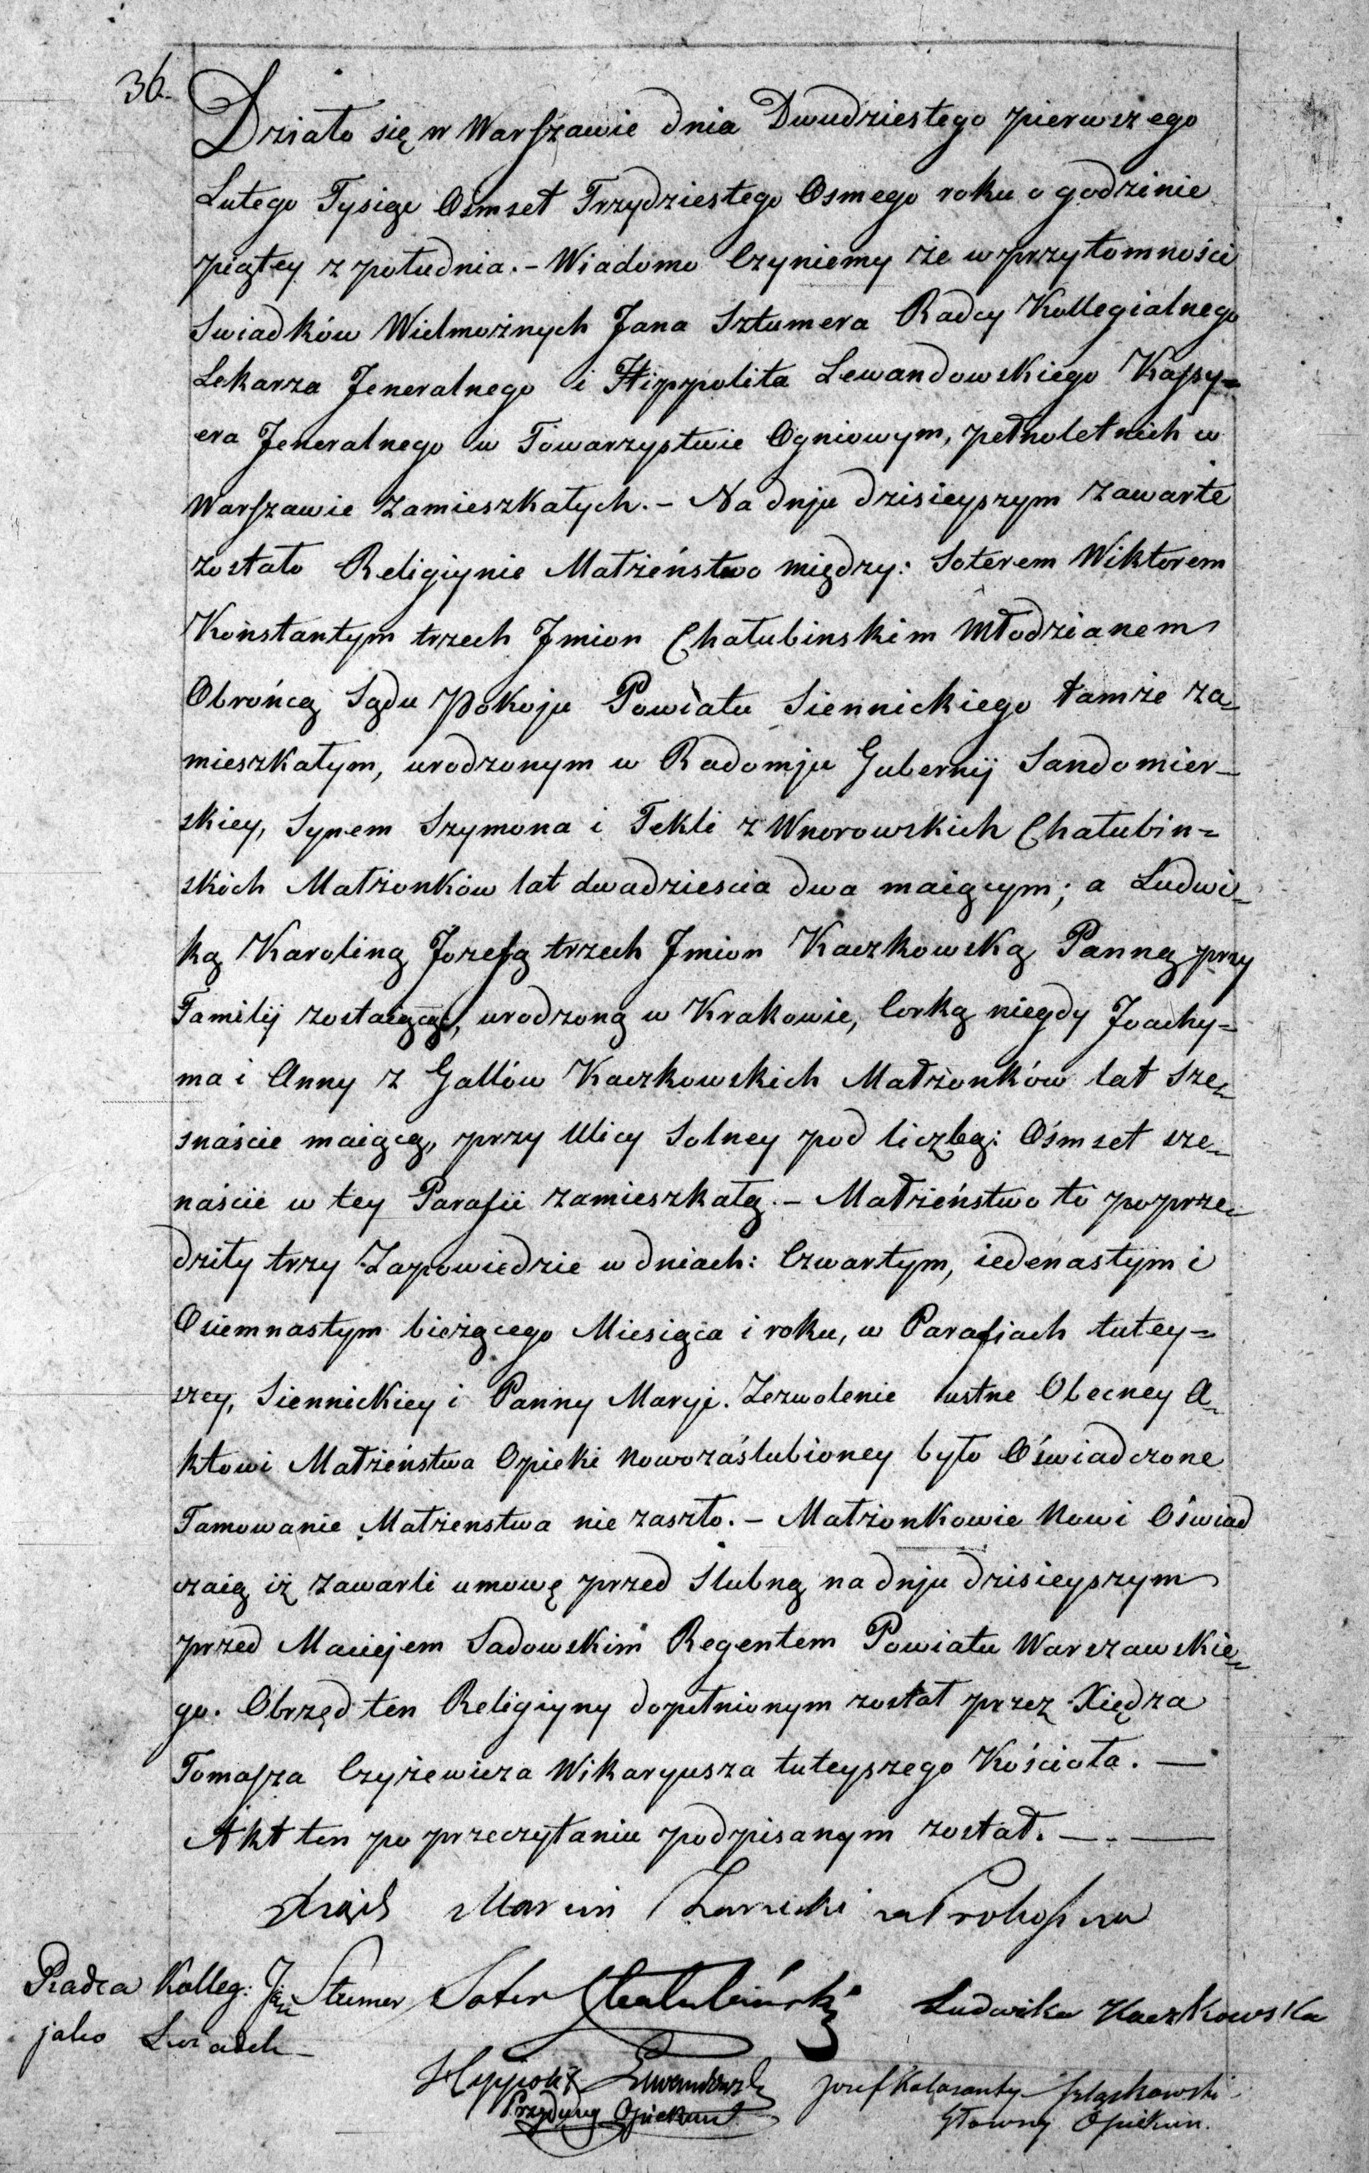 36.
Działo się w Warszawie dnia Dwudziestego pierwszego
Lutego Tysiąc Osmset Trzydziestego Osmego roku o godzinie
piątey z południa. – Wiadomo Czyniemy że w przytomności
Swiadków Wielmożnych Jana Sztumera Radcy Kollegialnego
Lekarza Jeneralnego i Hippolita Lewandowskiego Kassy=
era Jeneralnego w Towarzystwie Ogniowym, pełnoletnich w
Warszawie zamieszkałych. – Na dniu dzisieyszym zawarte
zostało Religiynie Małżeństwo między: Soterem Wiktorem
Konstantym trzech Jmion Chałubinskim Młodzianem
Obrońcą Sądu Pokoju Powiatu Siennickiego tamże za=
mieszkałym, urodzonym w Radomju Gubernij Sandomier=
skiey, Synem Szymona i Tekli z Wnorowskich Chałubin=
skich Małżonków lat dwadziescia dwa maiącym; a Ludwi=
ką Karoliną Jozefą trzech Jmion Kaczkowską Panną przy
Familij zostaiącą, urodzoną w Krakowie, Corką niegdy Joachy=
ma i Anny z Gallów Kaczkowskich Małżonków lat sze=
snaście maiącą, przy Ulicy Solney pod liczbą: Ośmset sze=
naście w tey Parafii zamieszkałą. – Małżeństwo to poprze=
dziły trzy Zapowiedzie w dniach: Czwartym, iedenastym i
Osiemnastym bieżącego Miesiąca i roku, w Parafiach tutey=
szey, Siennickiey i Panny Maryi. Zezwolenie ustne Obecney A=
ktowi Małżeństwa Opieki Nowozaślubioney było Oświadczone
Tamowanie Małżenstwa nie zaszło. – Małżonkowie Nowi Oświad
czaią iż zawarli umowę przed Slubną na dniu dzisieyszym
przed Maciejem Sadowskim Regentem Powiatu Warszawskie=
go. Obrzęd ten Religiyny dopełnionym został przez Xiędza
Tomasza Czyżewicza Wikaryusza tuteyszego Kościoła. —
Akt ten po przeczytaniu podpisanym został. —
Xiądz Marcin Proboszcza
Radca Kolleg: Jan Stumer Soter Chałubiński Ludwika Kaczkowska
jako Swiadek
Hyppolit Lewandowski Jozef Kalasanty
Przydany Opiekun Głowny Opiekun.